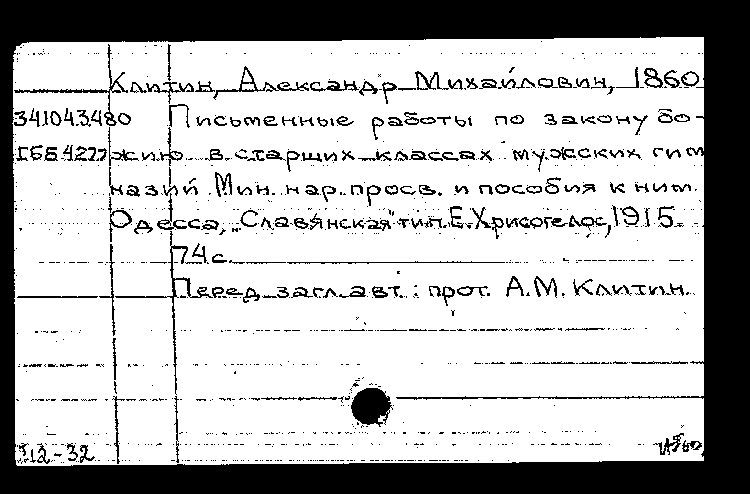 Клитин, Александр Михайлович, 1860
341043480 Письменные работы по закону бо-
жию в старших классах мужских гим
назий Мин. нар. просв. и пособия к ним.
Одесса, "Славянская" тип. Е. Хрисогелос, 1915.
74 с.
Перед загл. авт.: прот. А.М. Клитин.
12-32